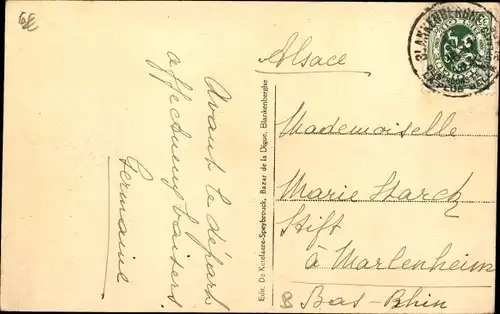 Avant le départ
affectueux baisers.
Germaine
Edit. De Keudaere-Speybrouck, Bazar de la Digue, Blankenberghe
Alsace
Mademoiselle
Marie Starck
Stift
à Marlenheim
Bas-Rhin
BLANKENBERGHE